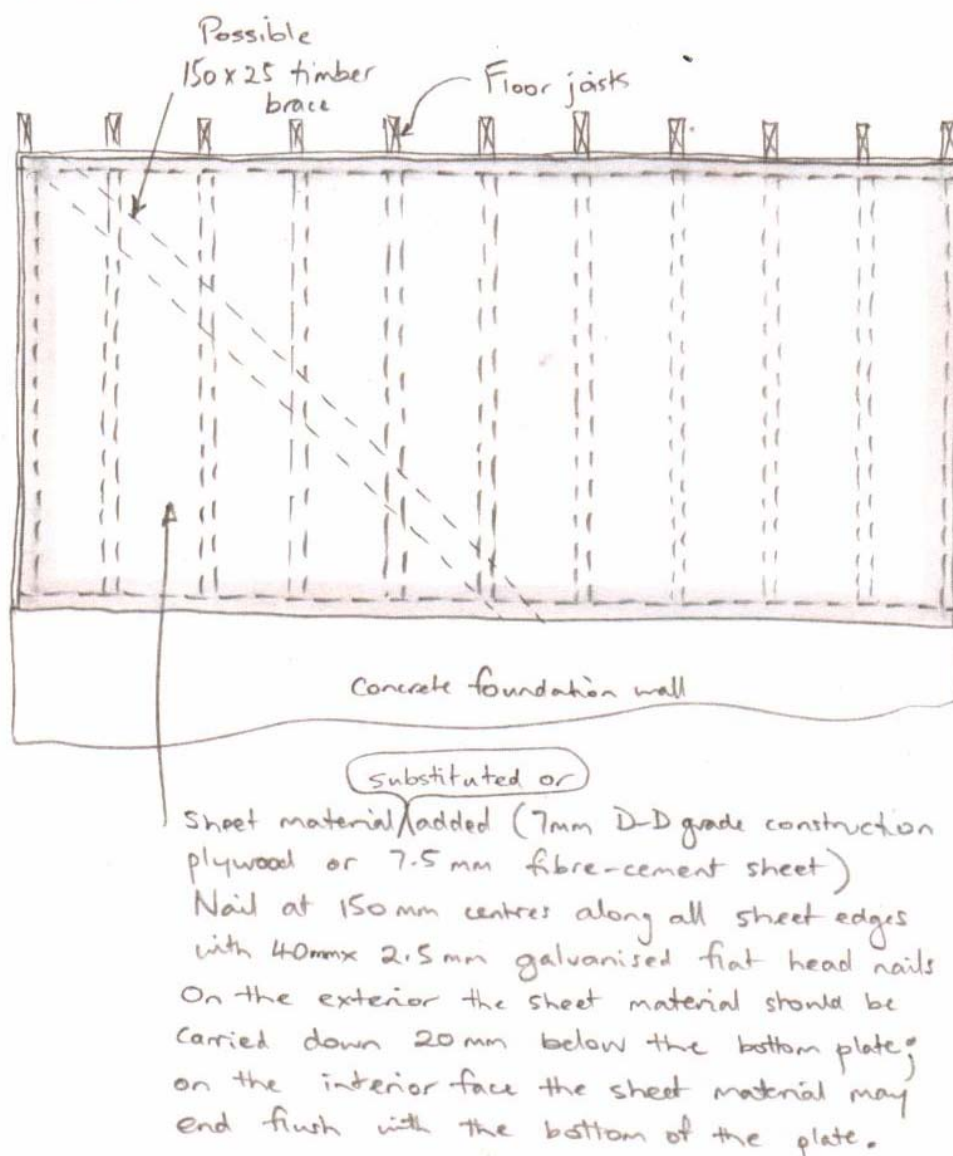 Possible
150 x 25 timber
brace
Floor joists
Concrete foundation wall
substituted or
Sheet material added (7mm D-D grade construction
plywood or 7.5 mm fibre-cement sheet)
Nail at 150 mm centres along all sheet edges
with 40mm x 2.5 mm galvanised flat head nails
On the exterior the sheet material should be
carried down 20 mm below the bottom plate;
on the interior face the sheet material may
end flush with the bottom of the plate.